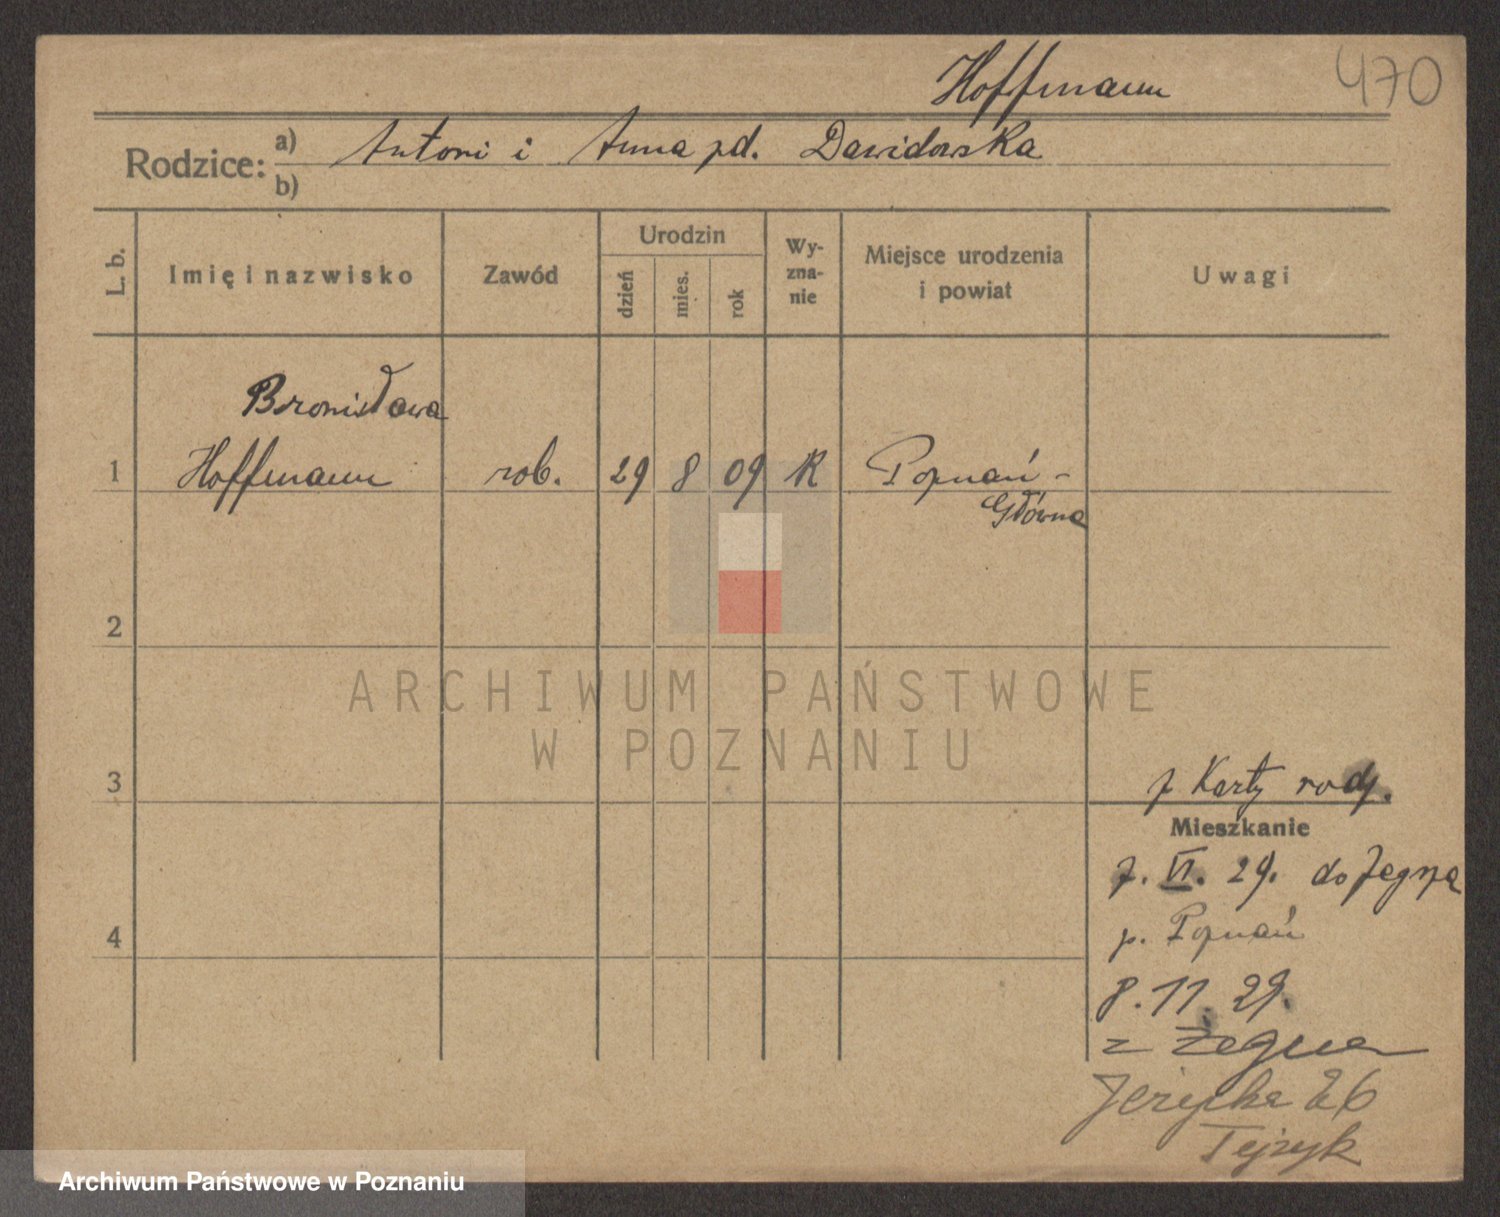 Hoffmann
470
Rodzice: a) Antoni i Anna zd. Dawidowska
b)
L. b.
Imię i nazwisko
Zawód
Urodzin
dzień
mies.
rok
Wy-
zna-
nie
Miejsce urodzenia
i powiat
Uwagi
Bronisława
1 Hoffmann rob. 29 8 09 K Poznań -
Główna
2
ARCHIWUM PAŃSTWOWE
W POZNANIU
3
z Karty rodz.
Mieszkanie
7. VI. 29. do
4
p. Poznań
8. 11. 29.
z
26
Archiwum Państwowe w Poznaniu